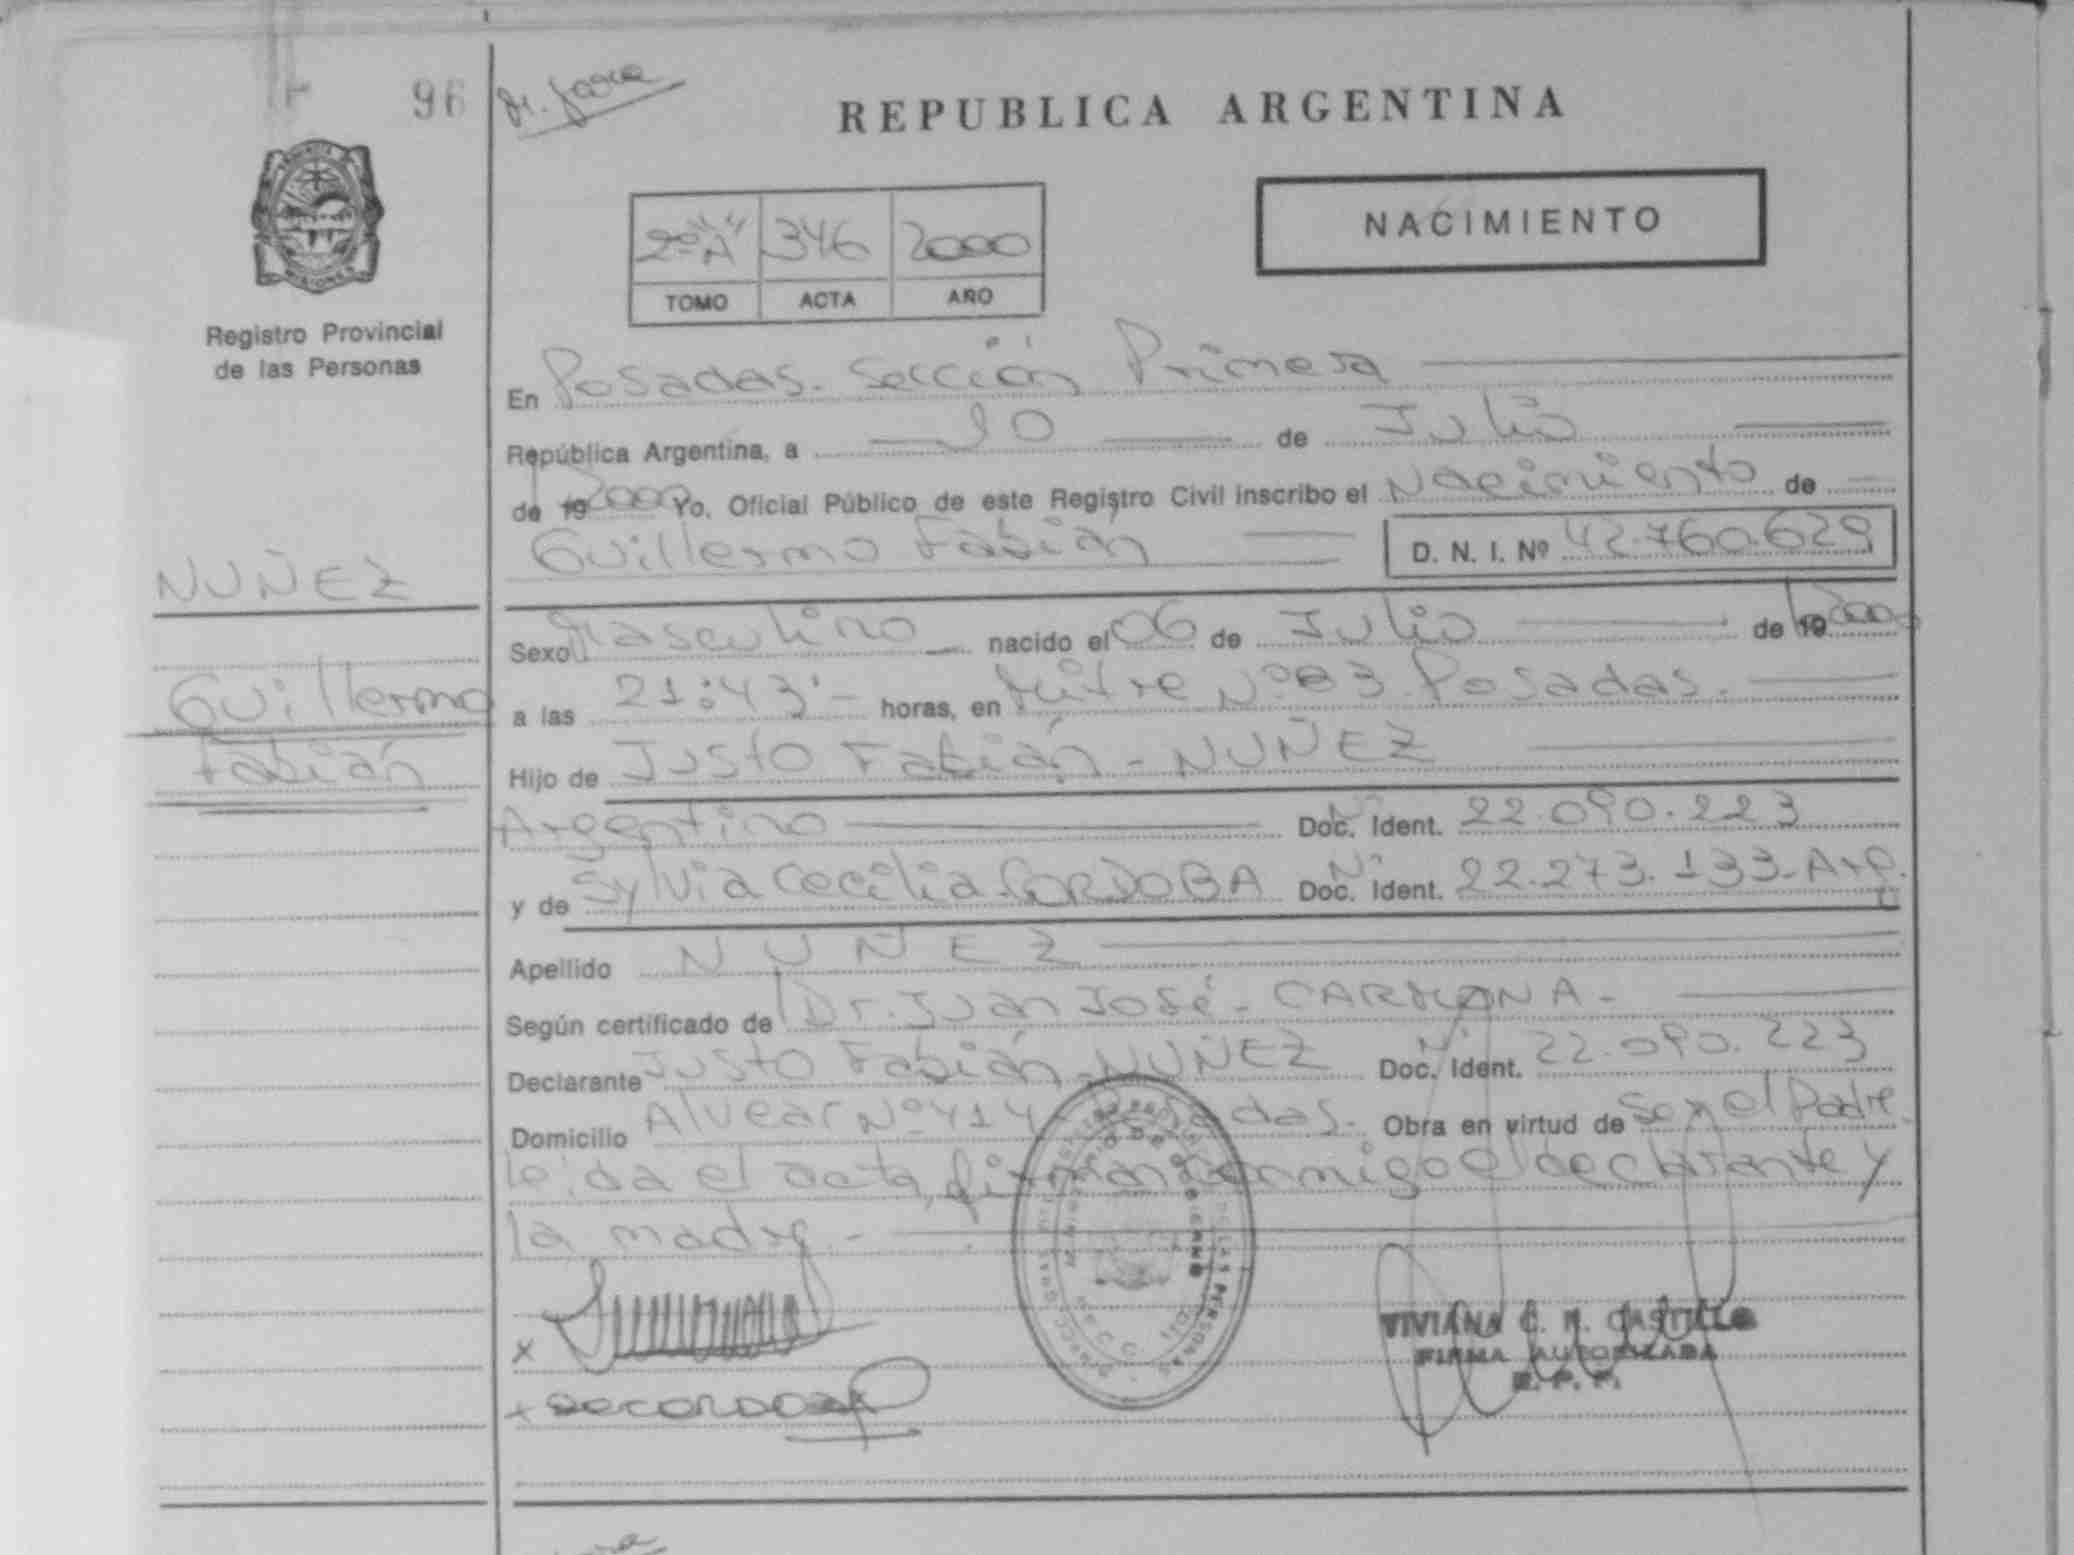 96
REPUBLICA ARGENTINA
NACIMIENTO
2º "A" 346 2000
TOMO ACTA AÑO
Registro Provincial
de las Personas
En Posadas. Sección Primera
República Argentina, a 10 de Julio
de 19 2000 Yo. Oficial Público de este Registro Civil inscribo el Nacimiento de
Guillermo Fabián D. N. I. Nº 42.760.629
NUÑEZ
Guillermo
Fabián
Sexo Masculino nacido el 06 de Julio de 19 2000
a las 21:43'- horas, en Mitre Nº 83. Posadas.
Hijo de Justo Fabián - NUÑEZ
Argentino Doc. Ident. Nº 22.090.223
y de Sylvia Cecilia CORDOBA Doc. Ident. Nº 22.273.133-Arg.
Apellido NUÑEZ
Según certificado de Dr. Juan José - CARMONA -
Declarante Justo Fabián - NUÑEZ Doc. Ident. Nº 22.090.223
Domicilio Alvear Nº 414 Posadas. Obra en virtud de ser el Padre.
leida el acta, firman conmigo el declarante y
la madre. -
VIVIANA C. M. CASTILLO
FIRMA AUTORIZADA
R. P. P.